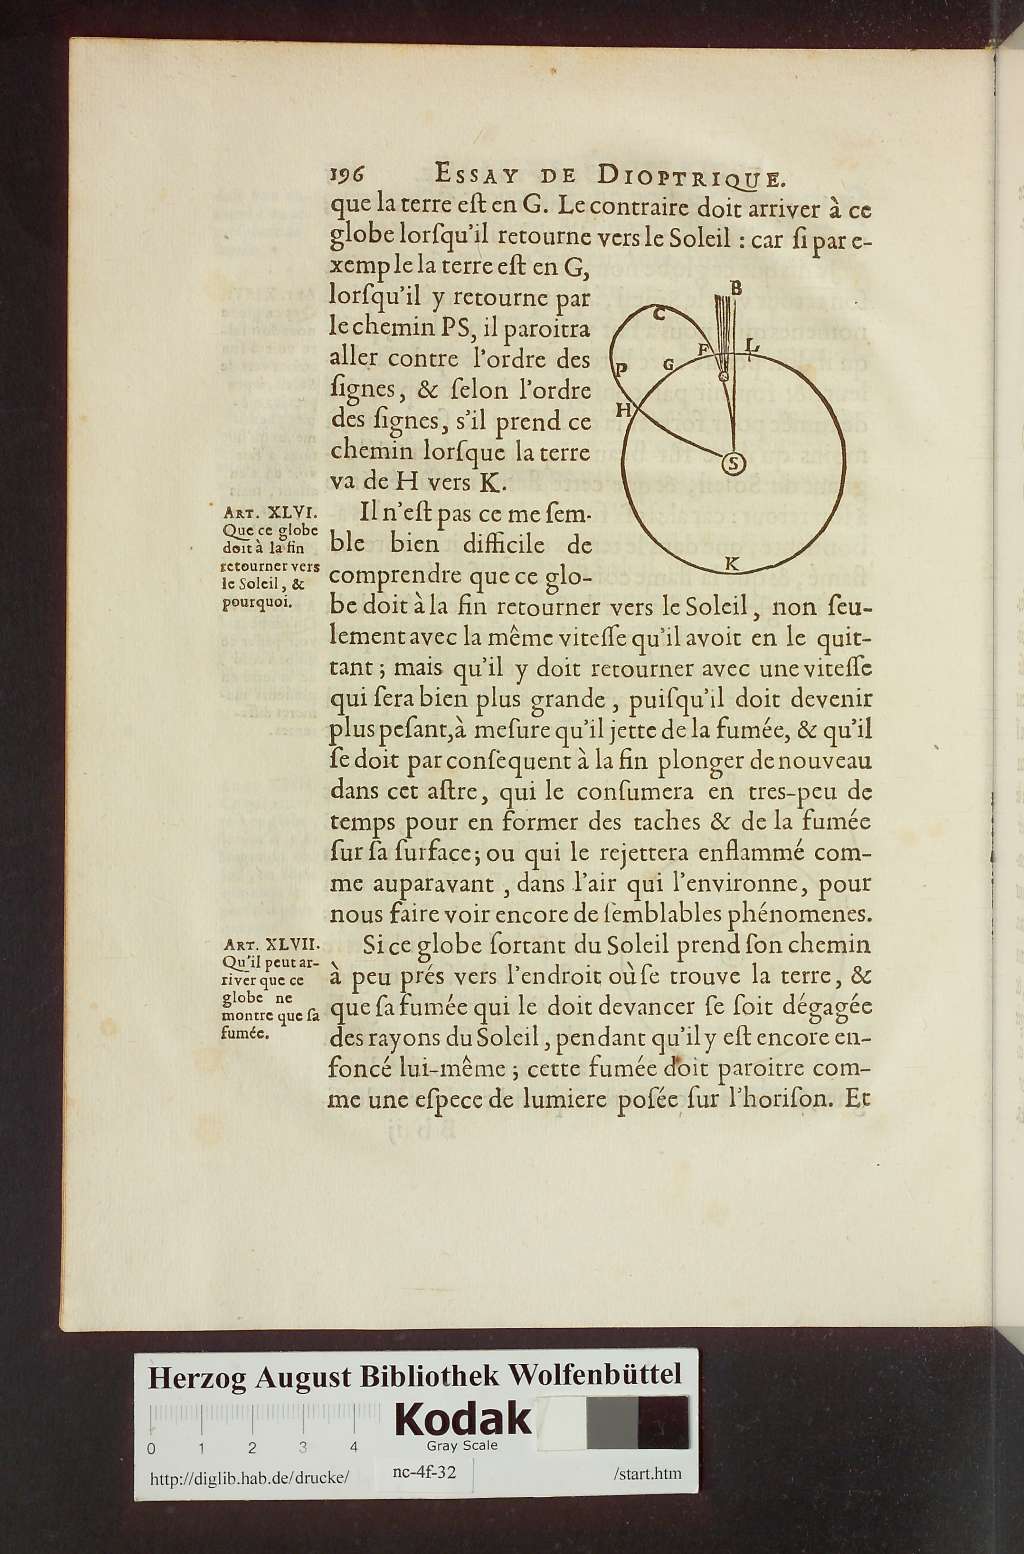 196 ESSAY DE DIOPTRIQUE.
que la terre eſt en G. Le contraire doit arriver à ce
globe lorſqu'il retourne vers le Soleil : car ſi par e-
xemple la terre eſt en G,
lorſqu'il y retourne par
le chemin PS, il paroitra
aller contre l'ordre des
ſignes, & ſelon l'ordre
des ſignes, s'il prend ce
chemin lorſque la terre
va de H vers K.
B
C
F
L
G
P
H
S
K
ART. XLVI.
Que ce globe
doit à la fin
retourner vers
le Soleil, &
pourquoi.
Il n'eſt pas ce me ſem-
ble bien difficile de
comprendre que ce glo-
be doit à la fin retourner vers le Soleil, non ſeu-
lement avec la même viteſſe qu'il avoit en le quit-
tant ; mais qu'il y doit retourner avec une viteſſe
qui ſera bien plus grande, puiſqu'il doit devenir
plus peſant, à meſure qu'il jette de la fumée, & qu'il
ſe doit par conſequent à la fin plonger de nouveau
dans cet aſtre, qui le conſumera en tres-peu de
temps pour en former des taches & de la fumée
ſur ſa ſurface; ou qui le rejettera enflammé com-
me auparavant, dans l'air qui l'environne, pour
nous faire voir encore de ſemblables phénomenes.
ART. XLVII.
Qu'il peut ar-
river que ce
globe ne
montre que ſa
fumée.
Si ce globe ſortant du Soleil prend ſon chemin
à peu prés vers l'endroit où ſe trouve la terre, &
que ſa fumée qui le doit devancer ſe ſoit dégagée
des rayons du Soleil, pendant qu'il y eſt encore en-
foncé lui-même ; cette fumée doit paroitre com-
me une eſpece de lumiere poſée ſur l'horiſon. Et
Herzog August Bibliothek Wolfenbüttel
Kodak
Gray Scale
0 1 2 3 4
http://diglib.hab.de/drucke/ nc-4f-32 /start.htm